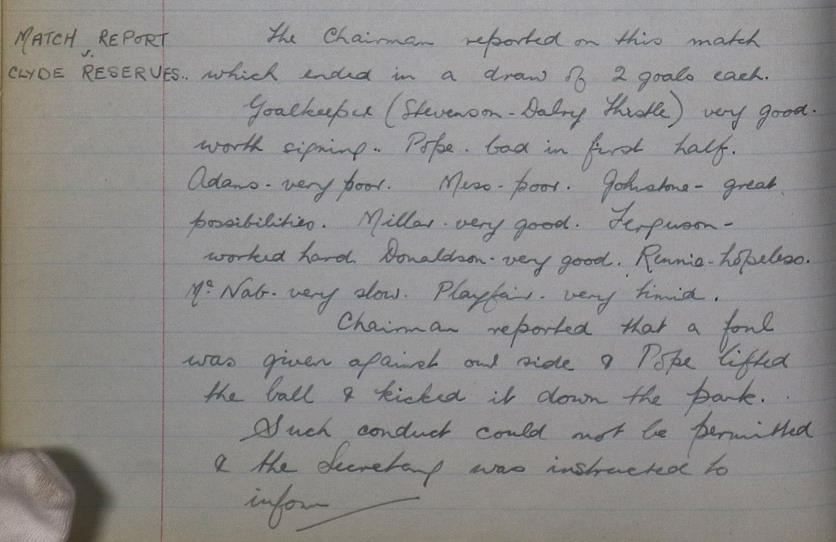 MATCH REPORT
v.
CLYDE RESERVES..
The Chairman reported on this match
which ended in a draw of 2 goals each.
Goalkeeper (Stevenson - Dalry Thistle) very good.
worth signing.. Pope. bad in first half.
Adams - very poor. Meso - poor. Johnstone - great
possibilities. Millar - very good. Ferguson -
worked hard. Donaldson - very good. Rennie - hopeless.
Mc Nab - very slow. Playfair - very timid.
Chairman reported that a foul
was given against our side & Pope lifted
the ball & kicked it down the park.
Such conduct could not be permitted
& the Secretary was instructed to
inform